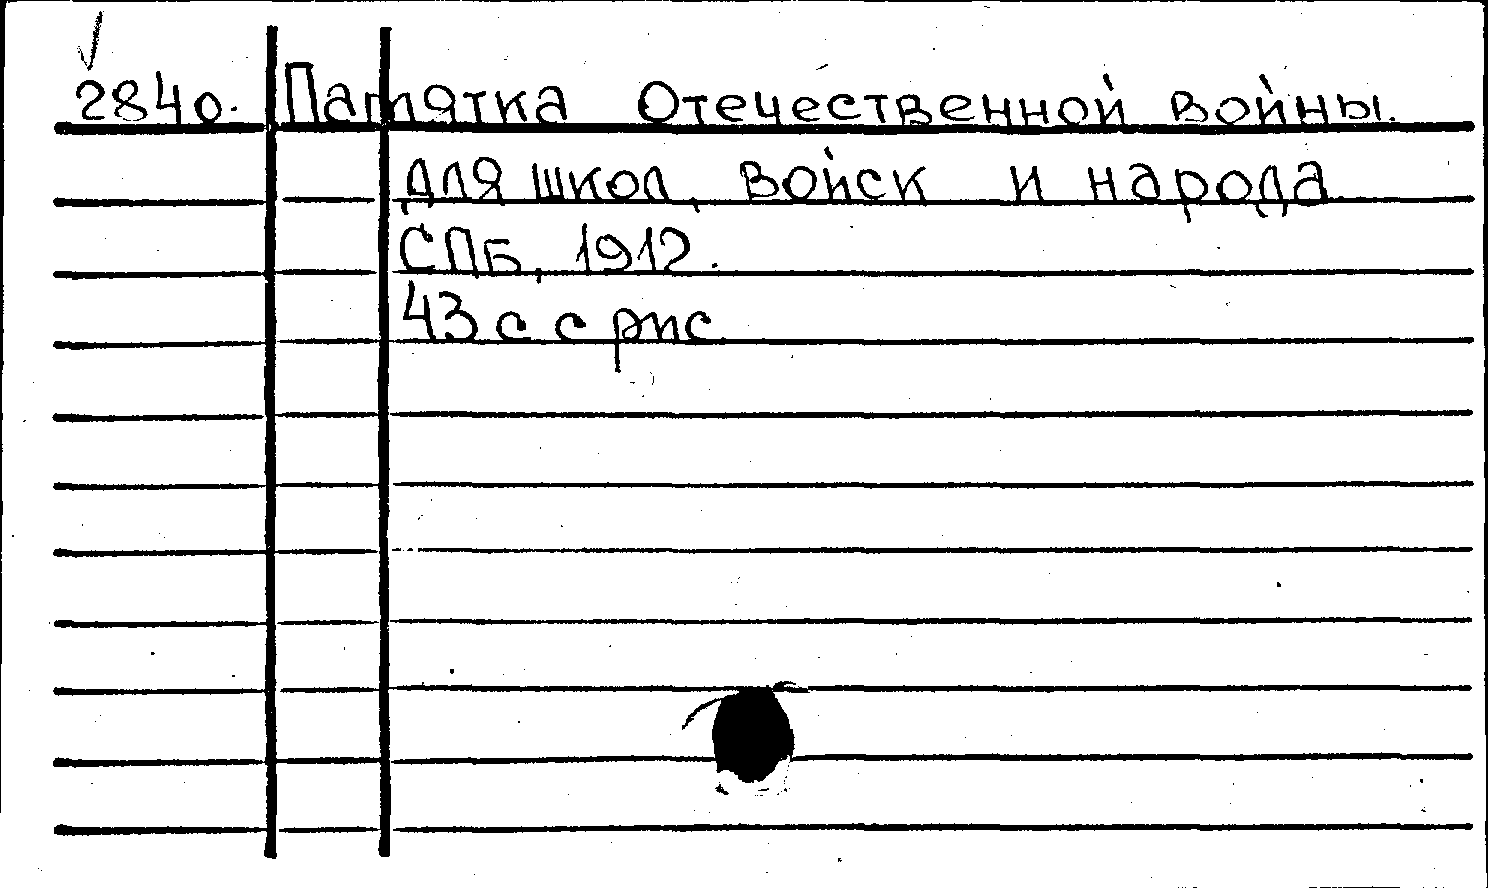 2840. Памятка Отечественной войны.
для школ, войск и народа
СПБ, 1912.
43 с с рис